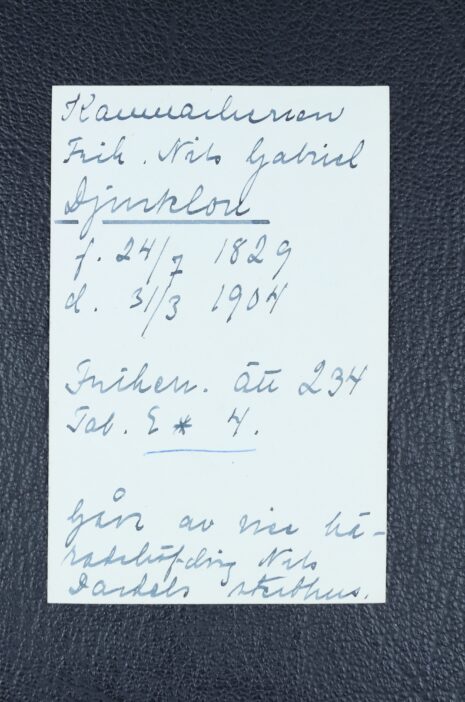 Kammarherren
Frih. Nils Gabriel
Djurklou
f. 24/7 1829
d. 31/3 1904
Friherr. ätt 234
Tab. E * 4.
Gåva av vice hä-
radshöfding Nils
Dardels sterbhus.